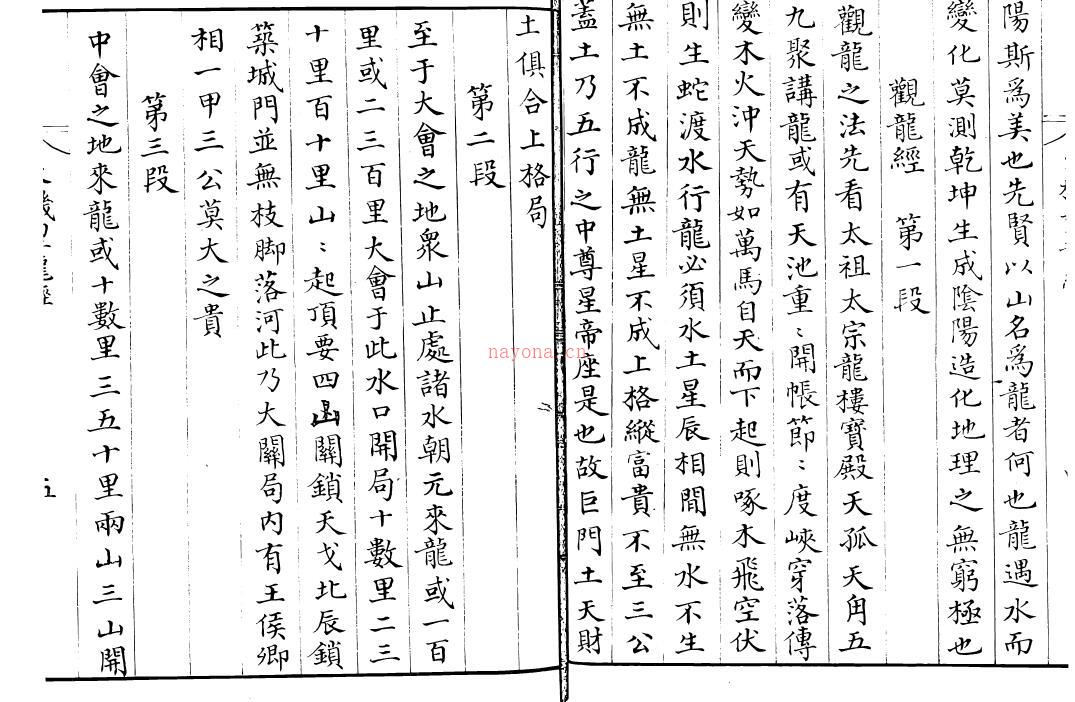 陽斯爲美也先賢以山名爲龍者何也龍遇水而
變化莫測乾坤生成陰陽造化地理之無窮極也
觀龍經 第一段
觀龍之法先看太祖太宗龍樓寶殿天孤天角五
九聚講龍或有天池重〻開帳節〻度峽穿落傳
變木火沖天勢如萬馬自天而下起則啄木飛空伏
則生蛇渡水行龍必須水土星辰相間無水不生
無土不成龍無土星不成上格縱富貴不至三公
蓋土乃五行之中尊星帝座是也故巨門土天財
土俱合上格局
第二段
至于大會之地衆山止處諸水朝元來龍或一百
里或二三百里大會于此水口開局十數里二三
十里百十里山〻起頂要四凾關鎖天戈北辰鎖
築城門並無枝脚落河此乃大關局内有王侯卿
相一甲三公莫大之貴
第三段
中會之地來龍或十數里三五十里兩山三山開
五
nayona.cn